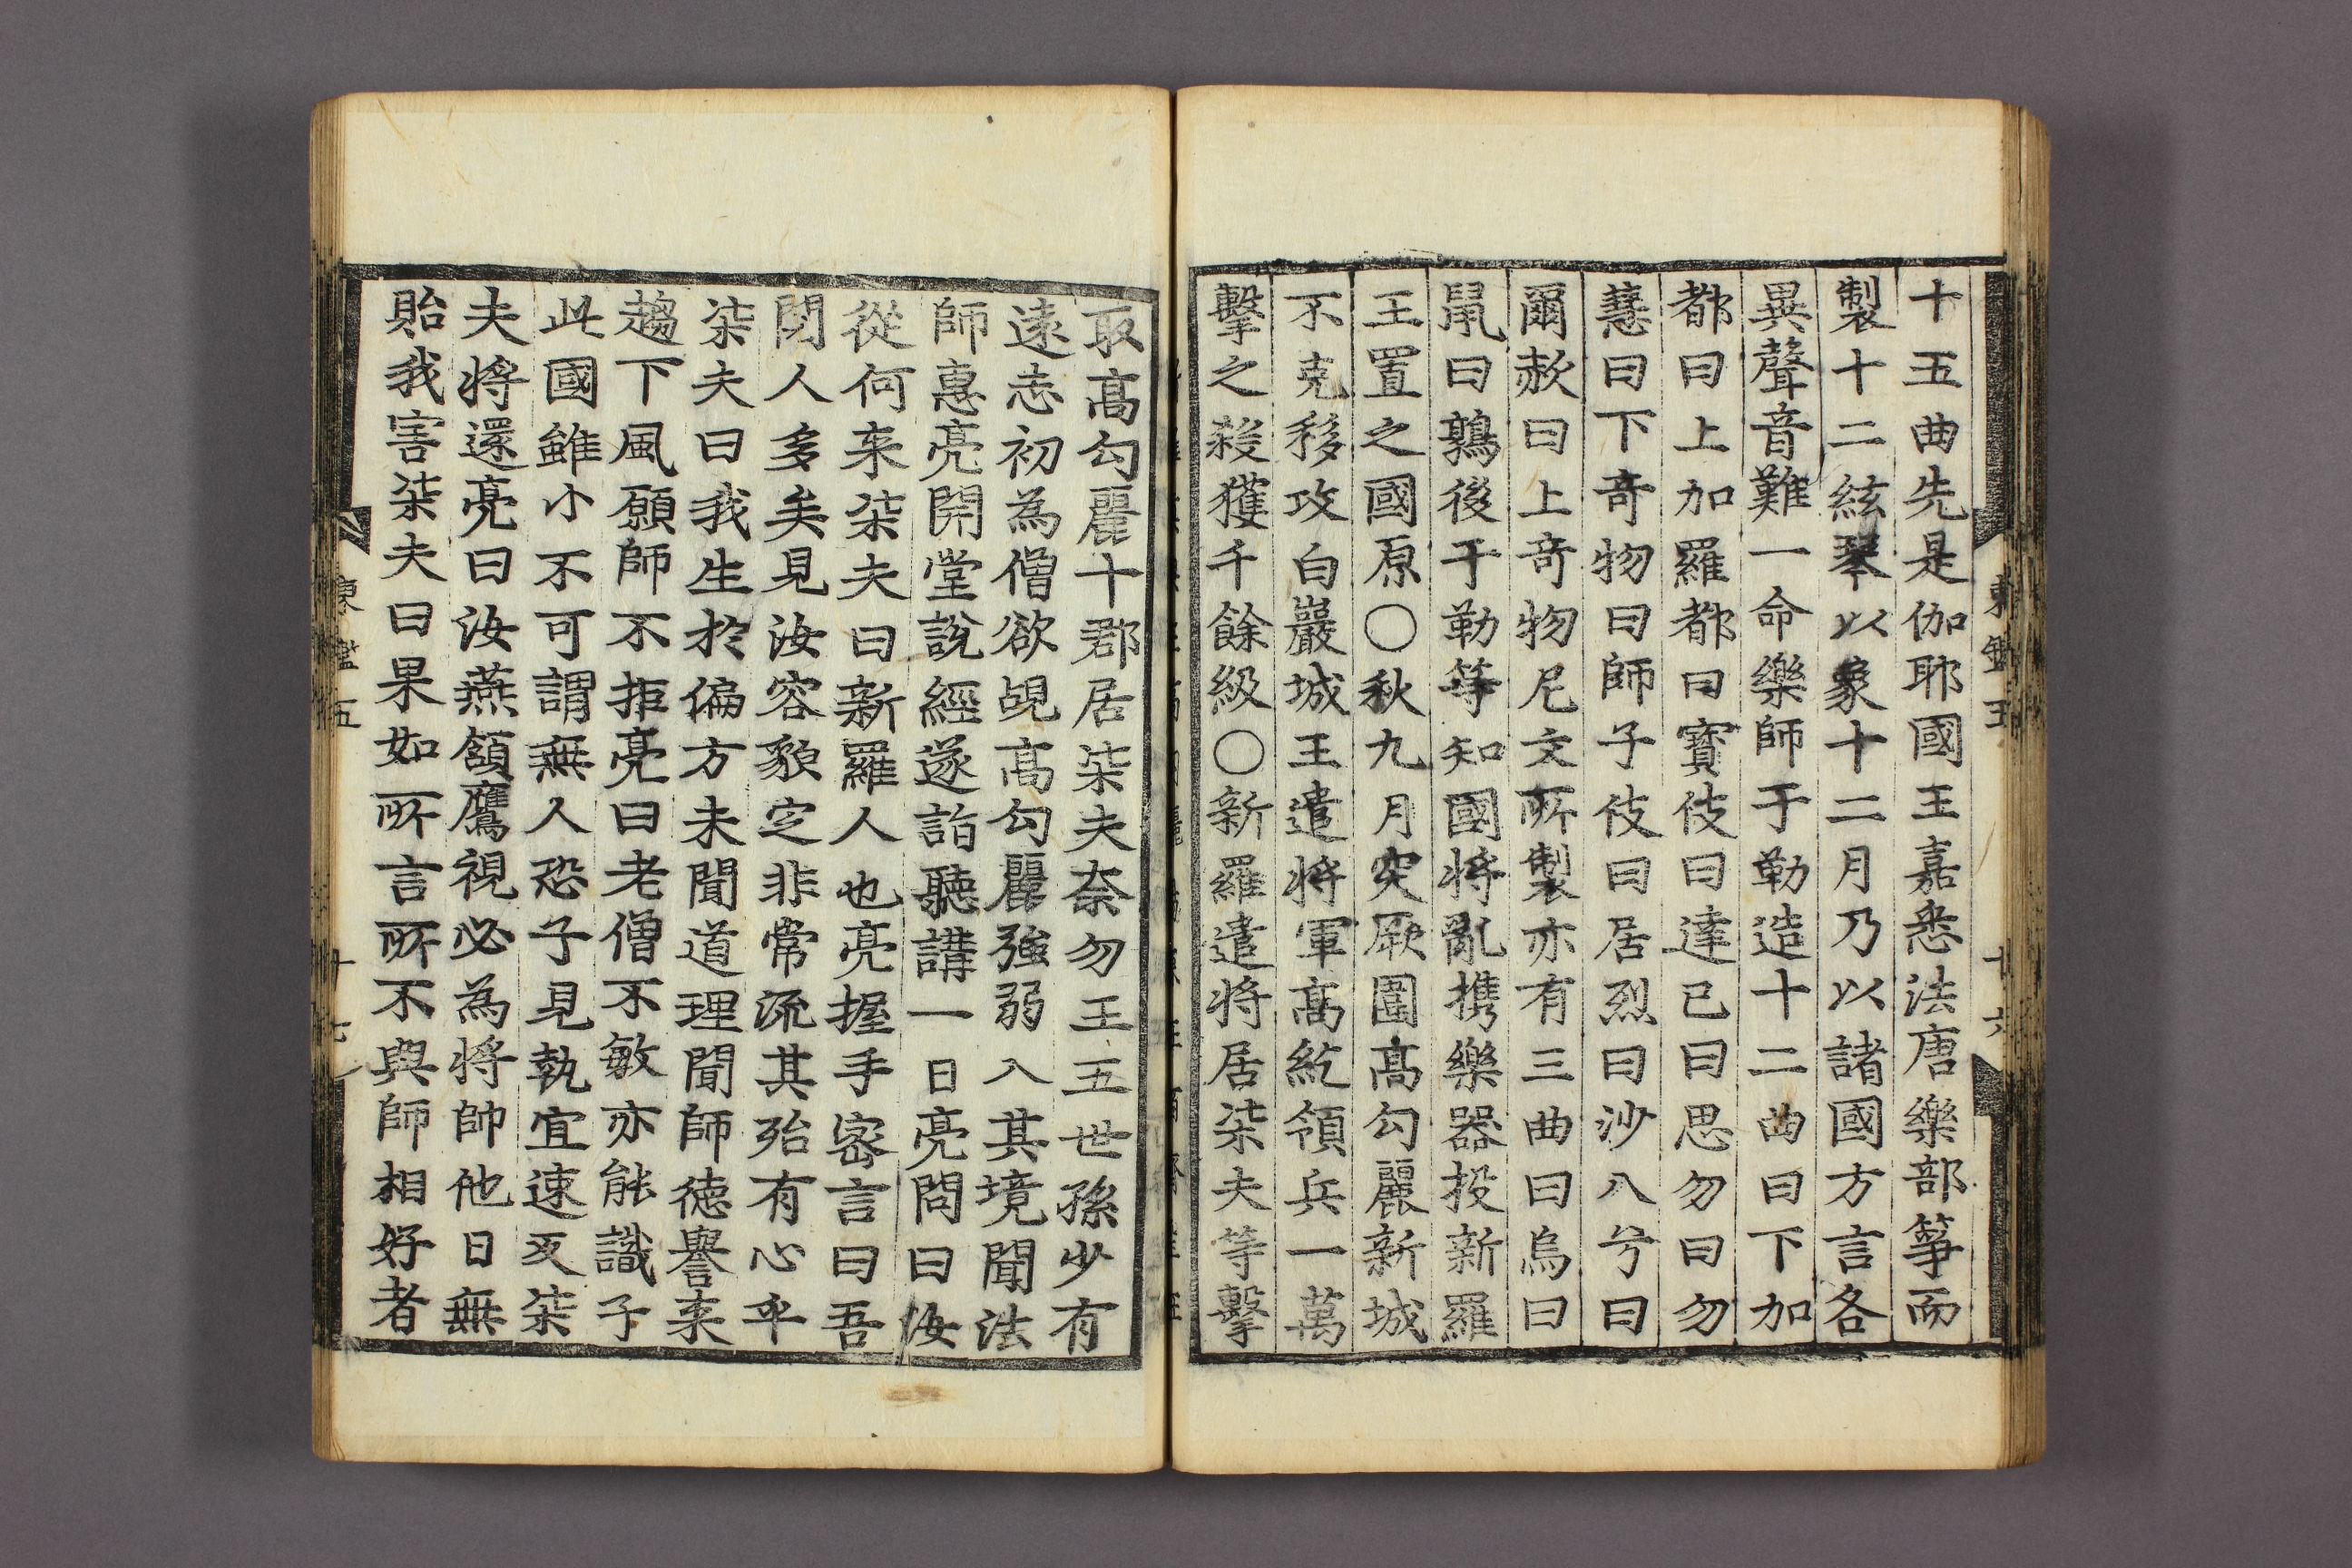 十五曲先是伽耶國王嘉悉法唐樂部箏而
製十二絃琴以象十二月乃以諸國方言各
異聲音難一命樂師于勒造十二曲曰下加
都曰上加羅都曰寶伎曰達已曰思勿曰勿
慧曰下奇物曰師子伎曰居烈曰沙八兮曰
爾赦曰上奇物尼文所製亦有三曲曰烏曰
鼠曰鶉後于勒等知國將亂携樂器投新羅
王置之國原○秋九月突厥圍高勾麗新城
不克移攻白巖城王遣將軍高紇領兵一萬
擊之殺獲千餘級○新羅遣將居柒夫等擊
東鑑五
十六
取高勾麗十郡居柒夫奈勿王五世孫少有
遠志初為僧欲覘高勾麗強弱入其境聞法
師惠亮開堂說經遂詣聽講一日亮問曰汝
從何来柒夫曰新羅人也亮握手密言曰吾
閱人多矣見汝容貌定非常流其殆有心乎
柒夫曰我生於偏方未聞道理聞師德譽来
趨下風願師不拒亮曰老僧不敏亦能識子
此國雖小不可謂無人恐子見執宜速返柒
夫將還亮曰汝燕頷鷹視必為將帥他日無
貽我害柒夫曰果如所言所不與師相好者
東鑑五
十七